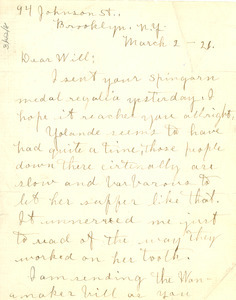 94 Johnson St.,
Brooklyn, N.Y.
March 2 - 21.
Dear Will;
I sent your Spingarn
medal regalia yesterday. I
hope it reaches you allright.
Yolande seems to have
had quite a time; those people
down there certenally are
slow and barbarous to
let her suffer like that.
It unnerved me just
to read of the way they
worked on her tooth.
I am sending the Wan-
amaker bill as you